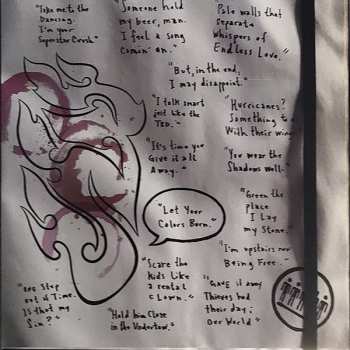 "Take me to the
Dancing.
I'm your
Superstar Crush."
"Someone hold
my beer, man.
I feel a song
Comin' on."
Pale walls that
Separate
Whispers of
Endless Love."
"But, in the end,
I may disappoint."
"I talk smart
just like the
TED."
"Hurricanes?
Something to
With their wind
"It's time you
Give it all
Away."
"You wear the
Shadows well."
"Green the
place
I Lay
my Stone."
"Let Your
Colors Born."
"I'm upstairs now
Being Free."
"Scare the
kids like
a rental
Clown."
"Gave it away
Thieves had
their day;
Our World"
"One Step
out of Time.
Is that my
Sin?"
"Hold him Close
in the Undertow."